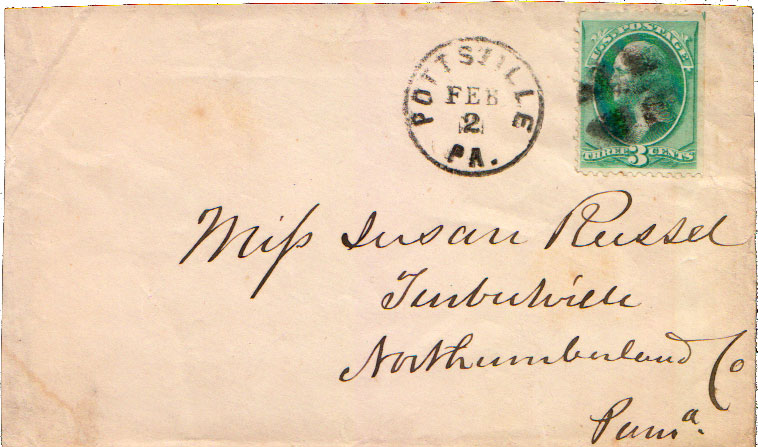 POTTSVILLE
FEB
2
PA.
U.S. POSTAGE
THREE 3 CENTS
Miss Susan Russel
Turbutville
Northumberland Co
Penna.